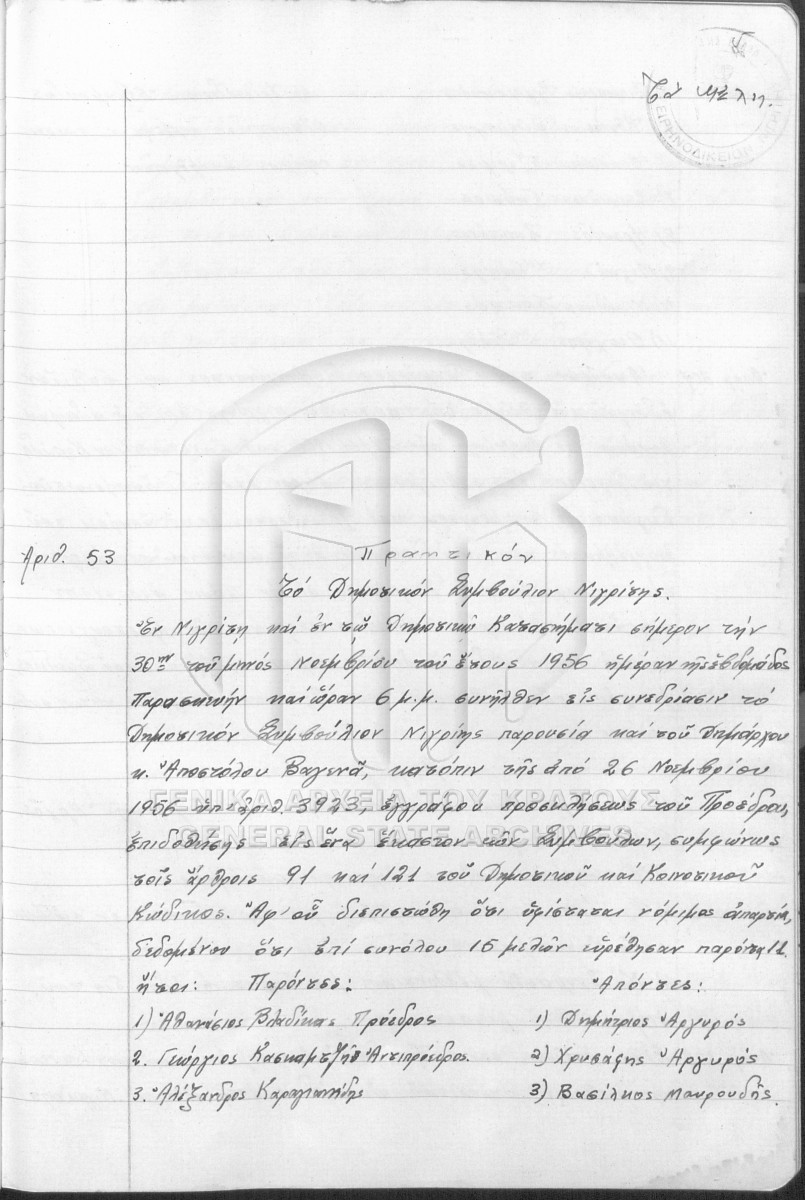 Τά Μέλη.
ΕΙΡΗΝΟΔΙΚΕΙΟΝ
Ἀριθ. 53
Πρακτικόν
Τό Δημοτικόν Συμβούλιον Νιγρίτης.
Ἐν Νιγρίτῃ καί ἐν τῷ Δημοτικῷ Καταστήματι σήμερον τήν
30ην τοῦ μηνός Νοεμβρίου τοῦ ἔτους 1956 ἡμέραν τῆς ἑβδομάδος
Παρασκευήν καί ὥραν 6 μ.μ. συνῆλθεν εἰς συνεδρίασιν τό
Δημοτικόν Συμβούλιον Νιγρίτης παρουσίᾳ καί τοῦ Δημάρχου
κ. Ἀποστόλου Βαγενᾶ, κατόπιν τῆς ἀπό 26 Νοεμβρίου
1956 ὑπ' ἀριθ. 3923, ἐγγράφου προσκλήσεως τοῦ Προέδρου,
ἐπιδοθείσης εἰς ἕνα ἕκαστον τῶν Συμβούλων, συμφώνως
τοῖς ἄρθροις 91 καί 121 τοῦ Δημοτικοῦ καί Κοινοτικοῦ
Κώδικος. Ἀφ' οὗ διεπιστώθη ὅτι ὑφίσταται νόμιμος ἀπαρτία,
δεδομένου ὅτι ἐπί συνόλου 15 μελῶν εὑρέθησαν παρόντα 12
ἤτοι: Παρόντες: Ἀπόντες:
1) Ἀθανάσιος Βλαδίκας Πρόεδρος 1) Δημήτριος Ἀργυρός
2. Γεώργιος Κασκαμτζῆς Ἀντιπρόεδρος. 2) Χρυσάφης Ἀργυρός
3. Ἀλέξανδρος Καραγιαννίδης 3) Βασίλειος Μαυρουδῆς.
ΓΕΝΙΚΑ ΑΡΧΕΙΑ ΤΟΥ ΚΡΑΤΟΥΣ
GENERAL STATE ARCHIVES